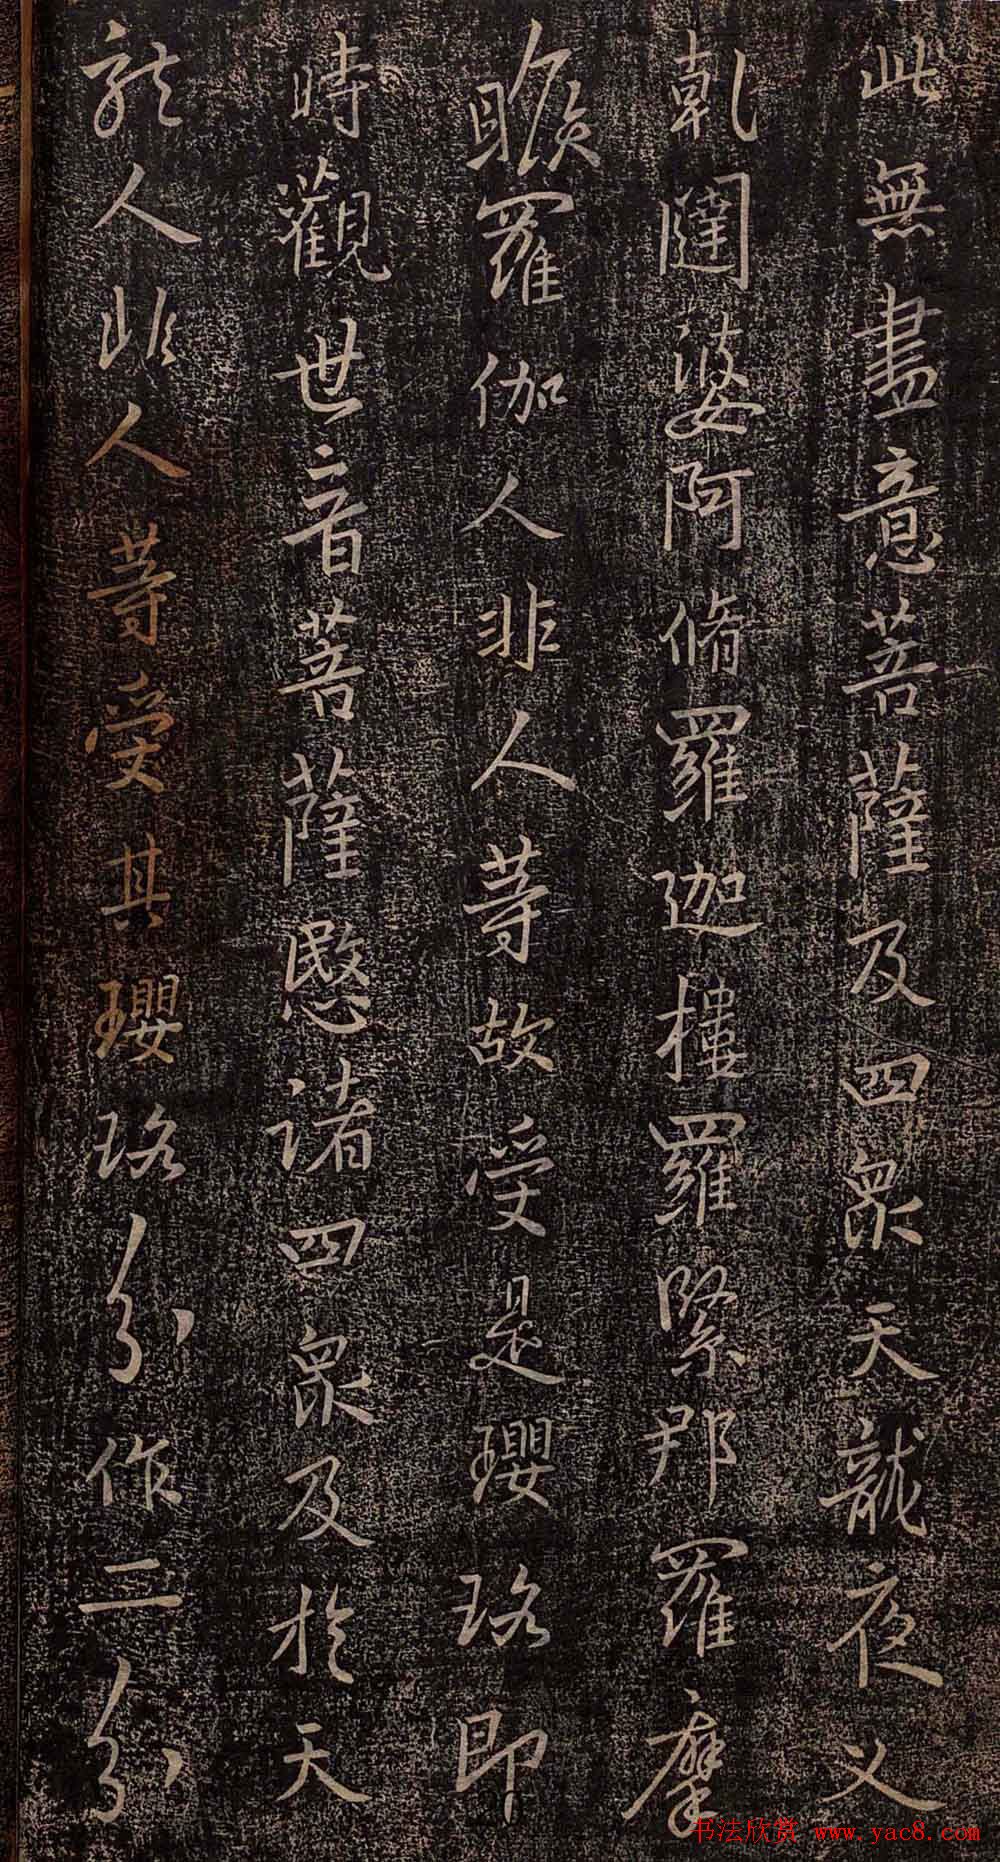 此無盡意菩薩及四衆天龍夜叉
乾闥婆阿脩羅迦樓羅緊那羅摩
睺羅伽人非人等故受是瓔珞即
時觀世音菩薩愍諸四衆及於天
龍人非人等受其瓔珞分作二分
书法欣赏 www.yac8.com